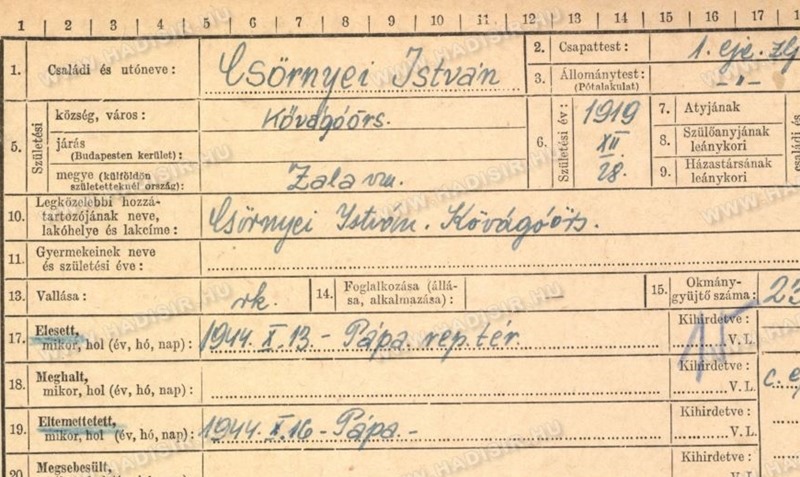 1 | 2 | 3 | 4 | 5 | 6 | 7 | 8 | 9 | 10 | 11 | 12 | 13 | 14 | 15 | 16 | 17 | 1
1. Családi és utóneve : Csörnyei István
2. Csapattest : 1. eje. zlj
3. Állománytest : (Pótalakulat) -"-
5. Születési
község, város : Kővágóörs.
járás
(Budapesten kerület) :
megye (külföldön
születetteknél ország) : Zala vm.
6. Születési év : 1919
XII
28.
7. Atyjának
8. Szülőanyjának
leánykori
9. Házastársának
leánykori
családi és
10. Legközelebbi hozzá-
tartozójának neve,
lakóhelye és lakcíme : Csörnyei István. Kővágóörs.
11. Gyermekeinek neve
és születési éve :
13. Vallása : rk.
14. Foglalkozása (állá-
sa, alkalmazása) : —
15. Okmány-
gyüjtő száma : 23
17. Elesett,
mikor, hol (év, hó, nap) : 1944. X. 13.- Pápa. rep. tér.
Kihirdetve :
V. I.
18. Meghalt,
mikor, hol (év, hó, nap) :
Kihirdetve :
V. I.
19. Eltemettetett,
mikor, hol (év, hó, nap) : 1944. X. 16 - Pápa.-
Kihirdetve :
V. I.
20. Megsebesült,
WWW.HADISIR.HU